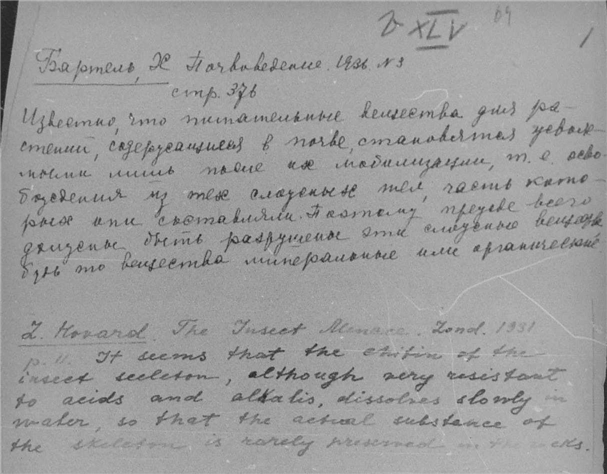 XLV 64
1
Бартель, Х Почвоведение. 1936 № 3
стр. 376
Известно, что питательные вещества для ра-
стений, содержащиеся в почве, становятся усвоя-
емыми лишь после их мобилизации, т. е. осво-
бождения из тех сложных тел, часть кото-
рых они составляли. Поэтому прежде всего
должны быть разрушены эти сложные вещества
будь то вещества минеральные или органические
L. Hovard. The Insect Menace. Lond. 1931
p. 11. It seems that the chitin of the
insect sceleton, although very resistant
to acids and alkalis, dissolves slowly in
water, so that the actual substance of
the skeleton is rarely preserved in the rocks.